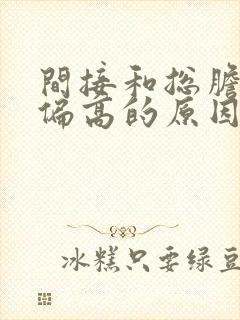 間接和总膽
偏高的原因
冰糕只要绿豆